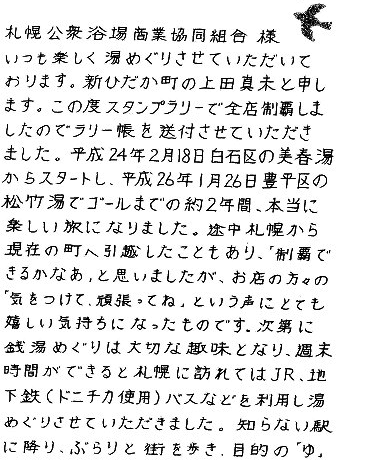 札幌公衆浴場商業協同組合 様
いつも楽しく湯めぐりさせていただいて
おります。新ひだか町の上田真未と申し
ます。この度スタンプラリーで全店制覇しま
したのでラリー帳を送付させていただき
ました。平成24年2月18日白石区の美春湯
からスタートし、平成26年1月26日豊平区の
松竹湯でゴールまでの約2年間、本当に
楽しい旅になりました。途中札幌から
現在の町へ引越したこともあり、「制覇で
きるかなあ」と思いましたが、お店の方々の
「気をつけて、頑張ってね」という声にとても
嬉しい気持ちになったものです。次第に
銭湯めぐりは大切な趣味となり、週末
時間ができると札幌に訪れてはJR、地
下鉄(ドニチカ使用)バスなどを利用し湯
めぐりさせていただきました。知らない駅
に降り、ぶらりと街を歩き、目的の「ゆ」